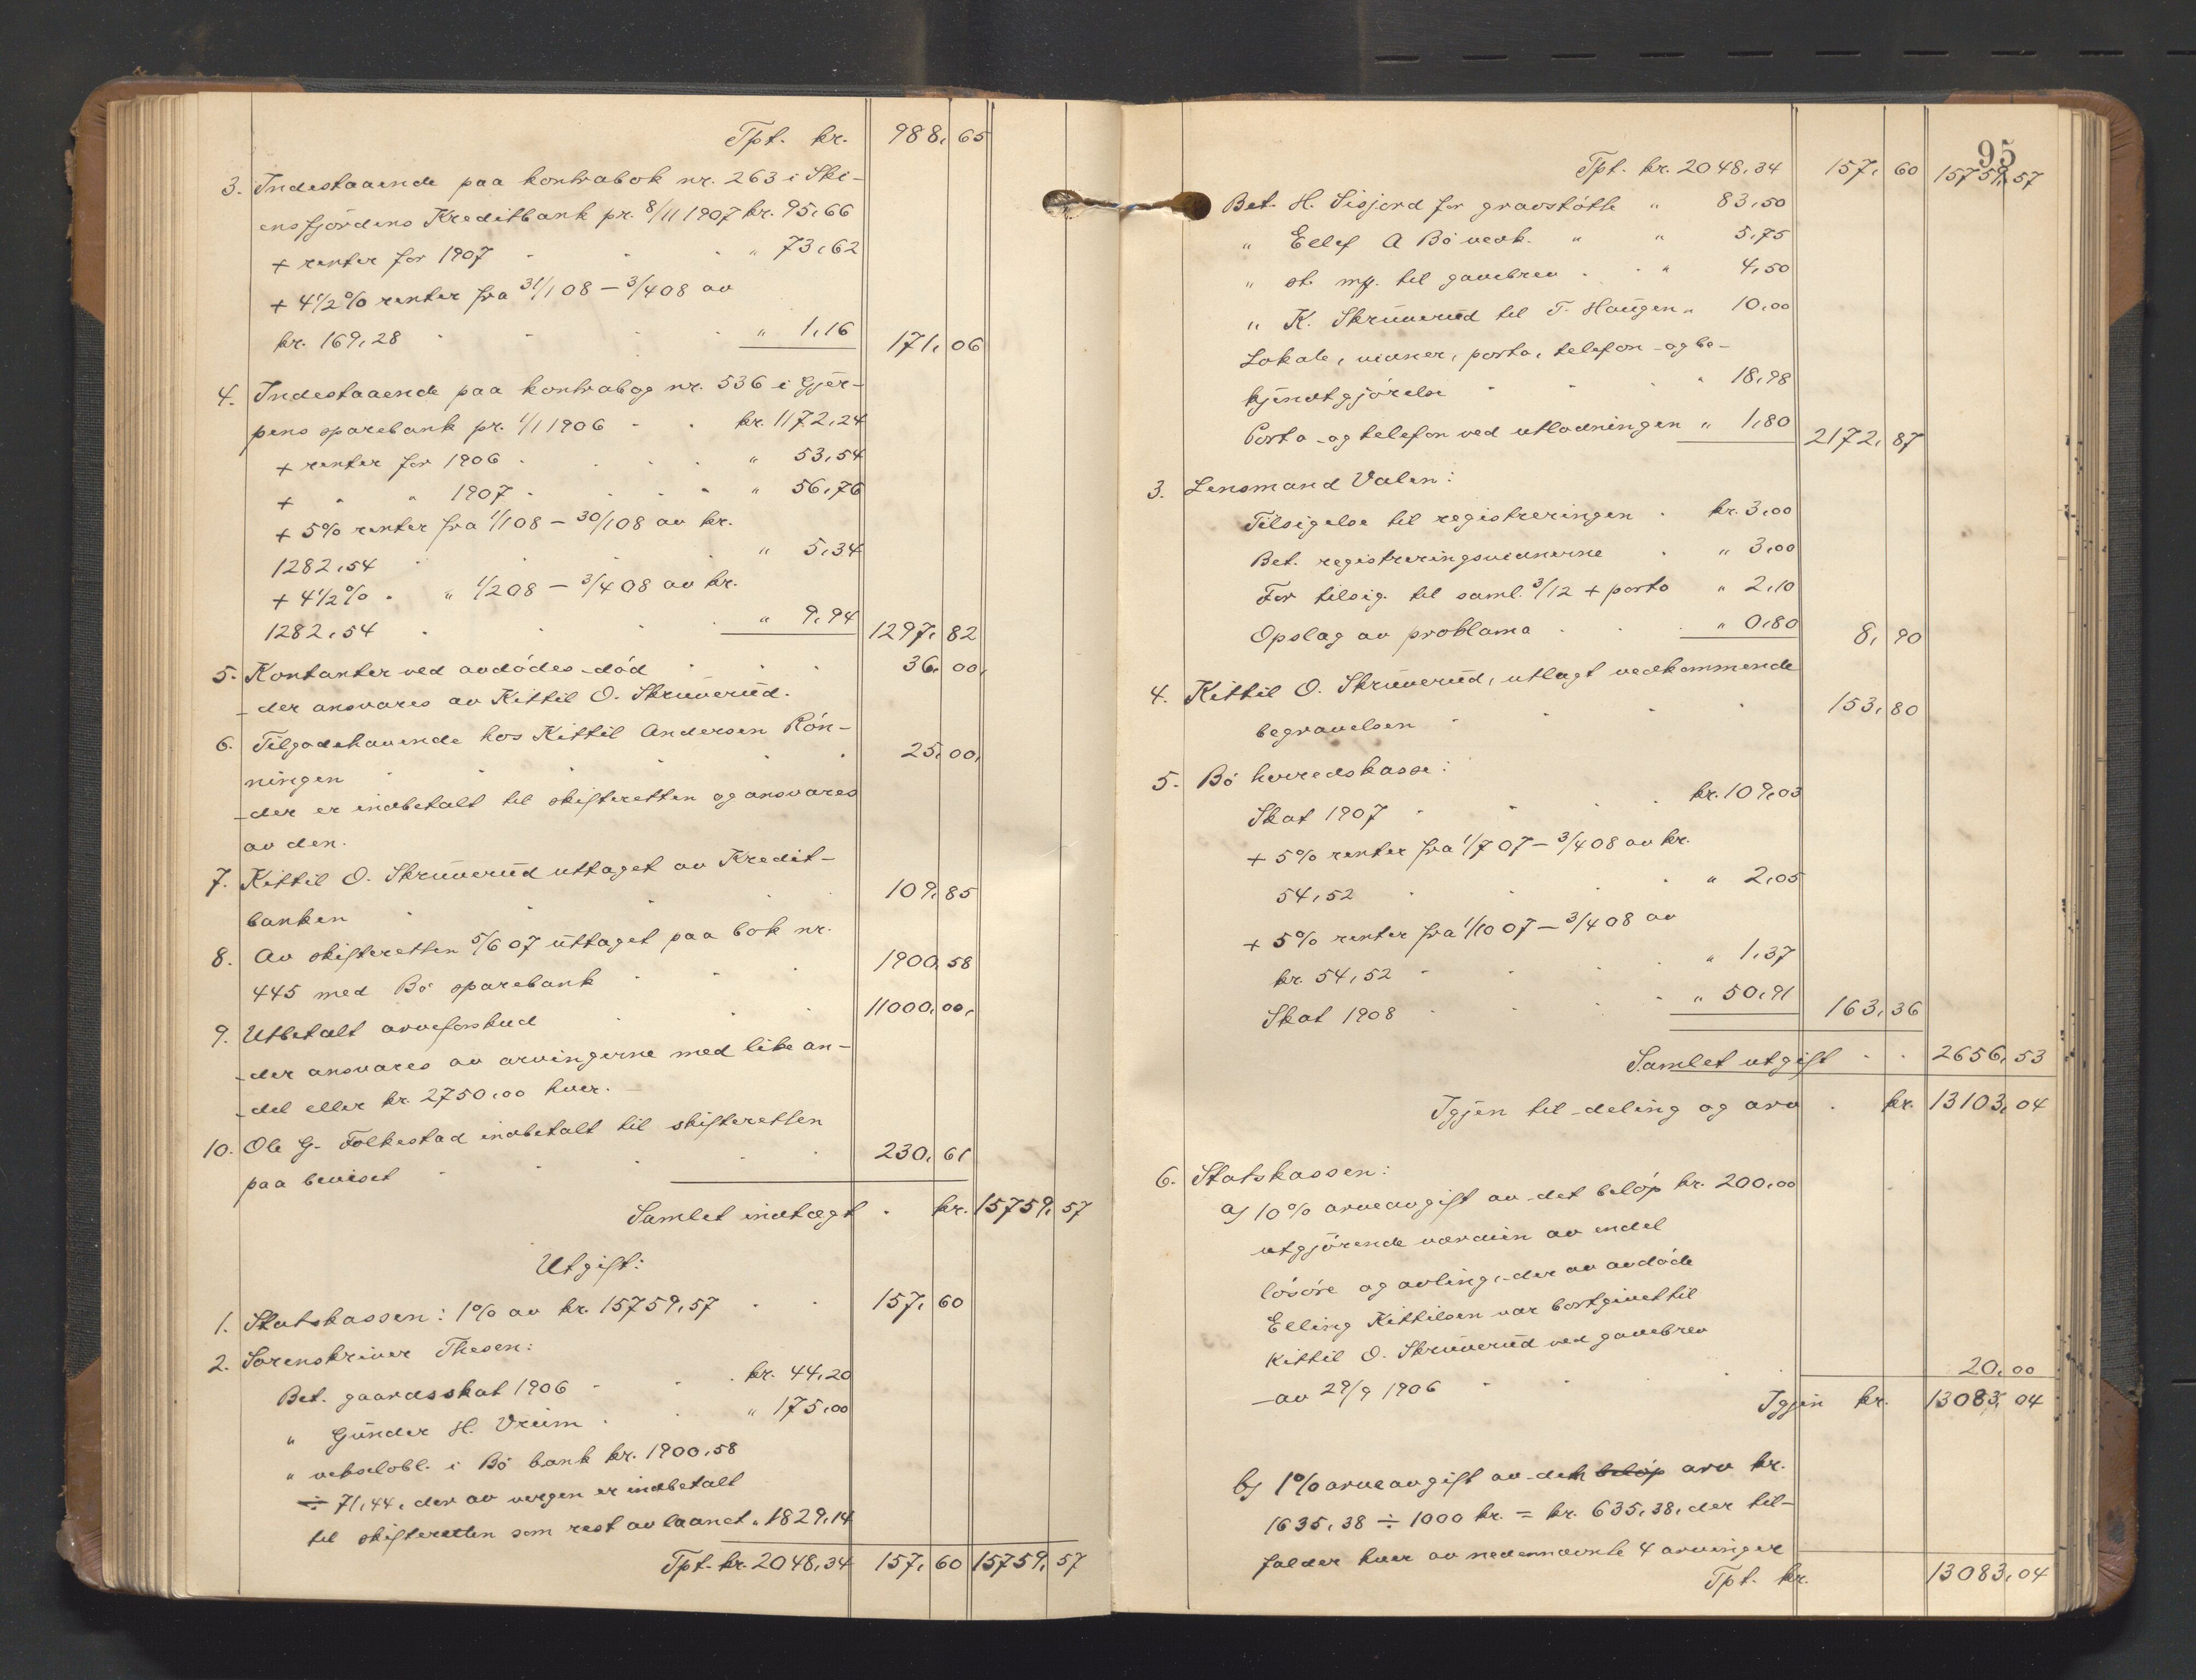 Tpt. kr. 988,65
3. Indestaaende paa kontrabok nr. 263 i Ski-
ensfjördens Kreditbank pr. 8/11 1907 kr. 95,66
+ renter for 1907 " 73,62
+ 4 1/2 % renter fra 31/1 08 – 3/4 08 av
kr. 169,28 " 1,16 171,06
4. Indestaaende paa kontrabog nr. 536 i Gjer-
pens sparebank pr. 1/1 1906 kr. 1172,24
+ renter for 1906 " 53,54
+ " " 1907 " 56,76
+ 5% renter fra 1/1 08 – 30/1 08 av kr.
1282,54 " 5,34
+ 4 1/2 % " " 1/2 08 – 3/4 08 av kr.
1282,54 " 9,94 1297,82
5. Kontanter ved avdødes død 36,00,
der ansvares av Kittil O. Skruverud.
6. Tilgodehavende hos Kittil Andersen Rön-
ningen 25,00,
der er indbetalt til skifteretten og ansvares
av den.
7. Kittil O. Skruverud uttaget av Kredit-
banken 109,85
8. Av skifteretten 5/6 07 uttaget paa bok nr.
445 med Bö sparebank 1900,58
9. Utbetalt arveforskud 11000,00,
der ansvares av arvingerne med like an-
del eller kr. 2750,00 hver.
10. Ole G. Folkestad indbetalt til skifteretten
paa beviset 230,61
Samlet indtægt kr. 15759,57
Utgift:
1. Statskassen: 1% av kr. 15759,57 157,60
2. Sorenskriver Thesen:
Bet. gaardsskat 1906 kr. 44,20
" Gunder H. Vreim " 175,00
" vekselobl. i Bö bank kr. 1900,58
÷ 71,44, der av vergen er indbetalt
til skifteretten som rest av laanet " 1829,14
Tpt. kr. 2048,34 157,60 15759,57
95
Tpt. kr. 2048,34 157,60 15759,57
Bet. H. Sisjord for gravstötte " 83,50
" Ellef A Bö vedk. " " 5,75
" st. mp. til gavebrev " 4,50
" K. Skruverud til T. Haugen " 10,00
Lokale, vidner, porto, telefon og be-
kjendtgjörelse " 18,98
Porto og telefon ved utlodningen " 1,80 2172,87
3. Lensmand Valen:
Tilsigelse til registreringen kr. 3,00
Bet. registreringsvidnerne " 3,00
For tilsig. til saml. 3/12 + porto " 2,10
Opslag av proklama " 0,80 8,90
4. Kittil O. Skruverud, utlagt vedkommende
begravelsen 153,80
5. Bö herredskasse:
Skat 1907 kr. 109,03
+ 5% renter fra 1/7 07 – 3/4 08 av kr.
54,52 " 2,05
+ 5% renter fra 1/10 07 – 3/4 08 av
kr. 54,52 " 1,37
Skat 1908 " 50,91 163,36
Samlet utgift 2656,53
Igjen til deling og arv kr. 13103,04
6. Statskassen:
a) 10% arveavgift av det belöp kr. 200,00
utgjörende værdien av endel
lösöre og avling, der av avdöde
Elling Kittilsen var bortgivet til
Kittil O. Skruverud ved gavebrev
av 29/9 1906 20,00
Igjen kr. 13083,04
b) 1% arveavgift av den belöp arv kr.
1635,38 ÷ 1000 kr. = kr. 635,38, der til-
falder hver av nedennævnte 4 arvinger
Tpt. kr. 13083,04